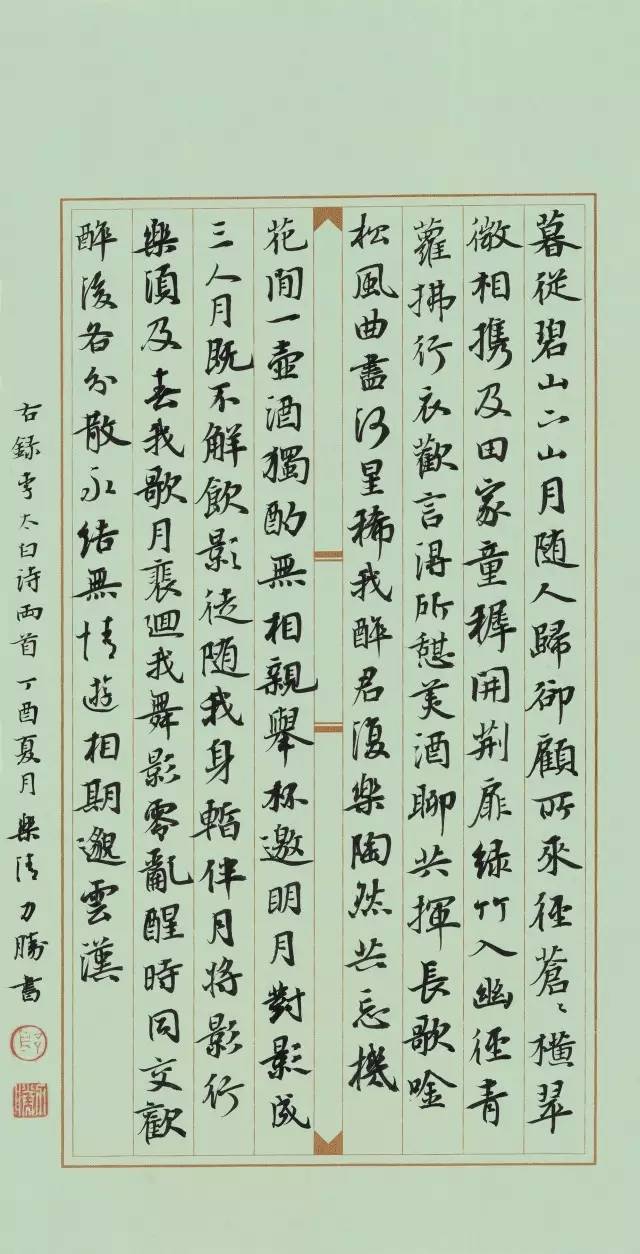 暮從碧山下山月随人歸却顧所來徑蒼〻橫翠
微相携及田家童稺開荆扉緑竹入幽徑青
蘿拂行衣歡言得所憇美酒聊共揮長歌唫
松風曲盡河星稀我醉君復樂陶然共忘機
花間一壺酒獨酌無相親舉杯邀明月對影成
三人月既不解飲影徒随我身暫伴月将影行
樂須及春我歌月裴迴我舞影零亂醒時同交歡
醉後各分散永結無情遊相期邈雲漢
右錄李太白诗两首丁酉夏月樂清力勝書